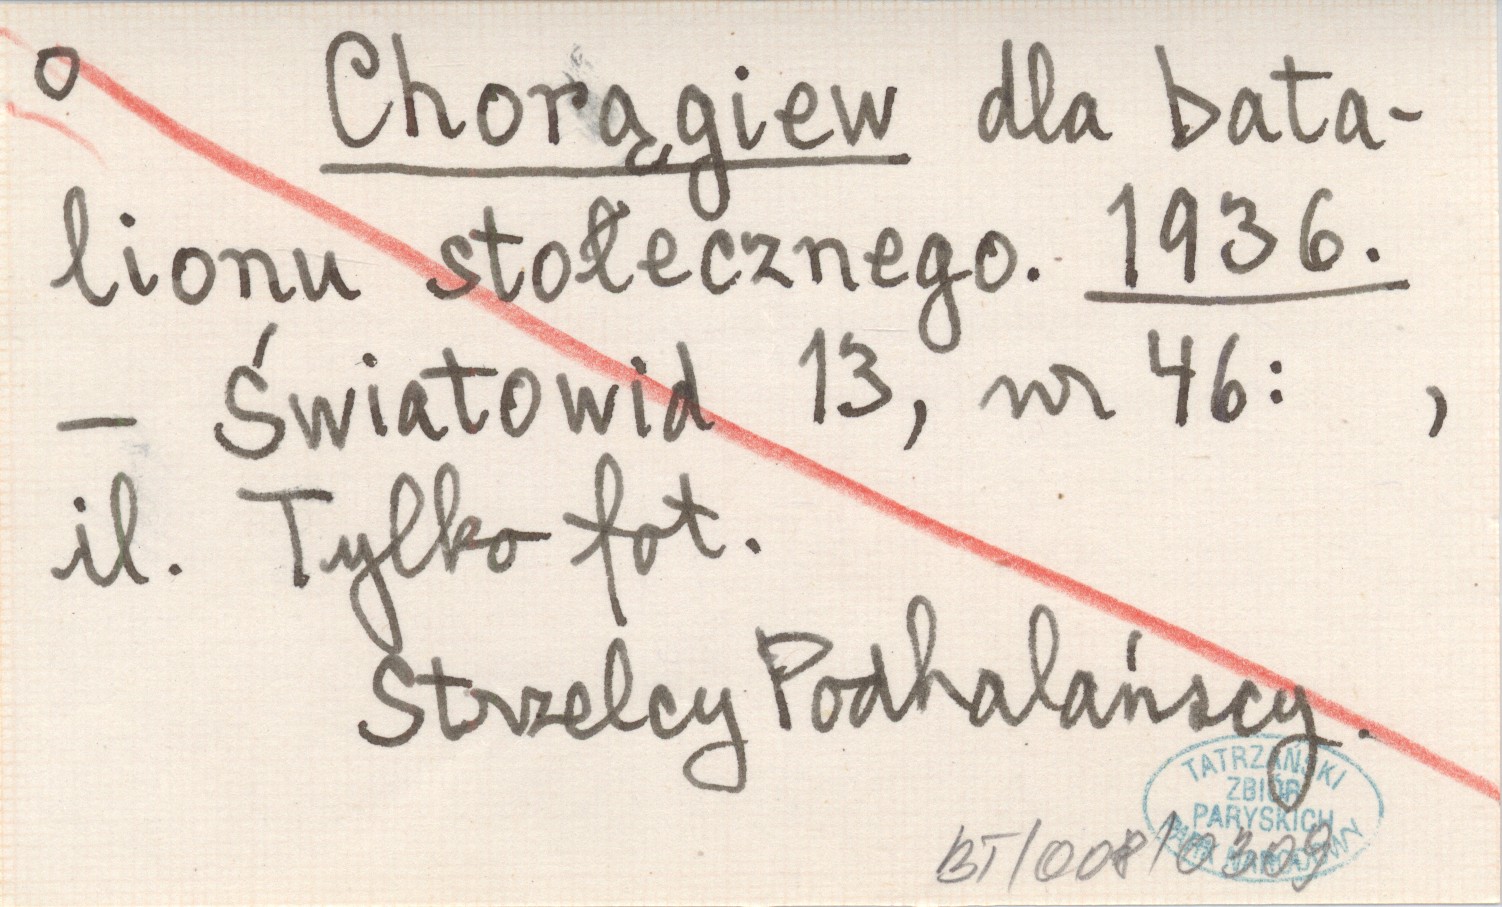 o Chorągiew dla bata-
lionu stołecznego. 1936.
— Światowid 13, nr 46: ,
il. Tylko fot.
Strzelcy Podhalańscy.
TATRZAŃSKI
ZBIÓR
PARYSKICH
PARK NARODOWY
BT/008/0309